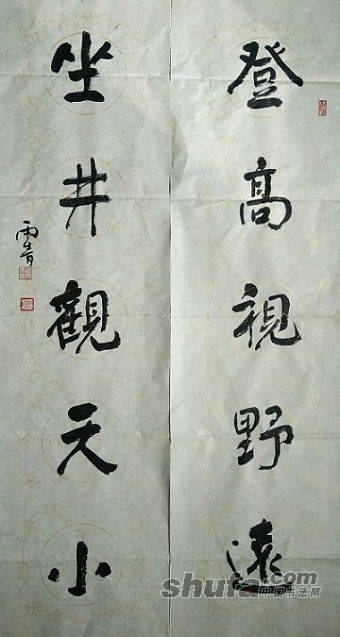 登高視野遠
坐井觀天小
雨青
shufa.com
中国书法网